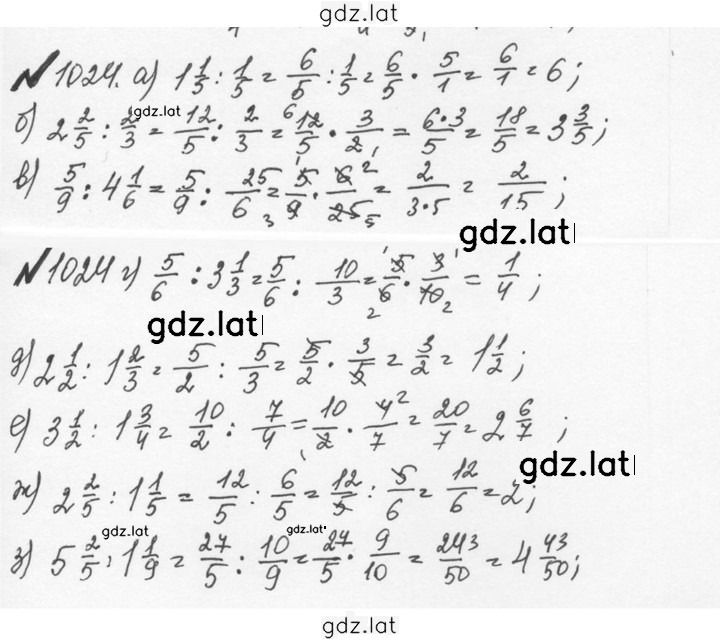 gdz.lat
№ 1024. а) 1 1/5 : 1/5 = 6/5 : 1/5 = 6/5 · 5/1 = 6/1 = 6;
gdz.lat
б) 2 2/5 : 2/3 = 12/5 : 2/3 = 12/5 · 3/2 = 6·3/5 = 18/5 = 3 3/5;
в) 5/9 : 4 1/6 = 5/9 : 25/6 = 5/9 · 6/25 = 2/3·5 = 2/15;
gdz.lat
№ 1024 г) 5/6 : 3 1/3 = 5/6 : 10/3 = 5/6 · 3/10 = 1/4;
gdz.lat
д) 2 1/2 : 1 2/3 = 5/2 : 5/3 = 5/2 · 3/5 = 3/2 = 1 1/2;
е) 3 1/2 : 1 3/4 = 10/2 : 7/4 = 10/2 · 4/7 = 20/7 = 2 6/7;
gdz.lat
ж) 2 2/5 : 1 1/5 = 12/5 : 6/5 = 12/5 : 5/6 = 12/6 = 2;
gdz.lat gdz.lat
з) 5 2/5 : 1 1/9 = 27/5 : 10/9 = 27/5 · 9/10 = 243/50 = 4 43/50;
gdz.lat